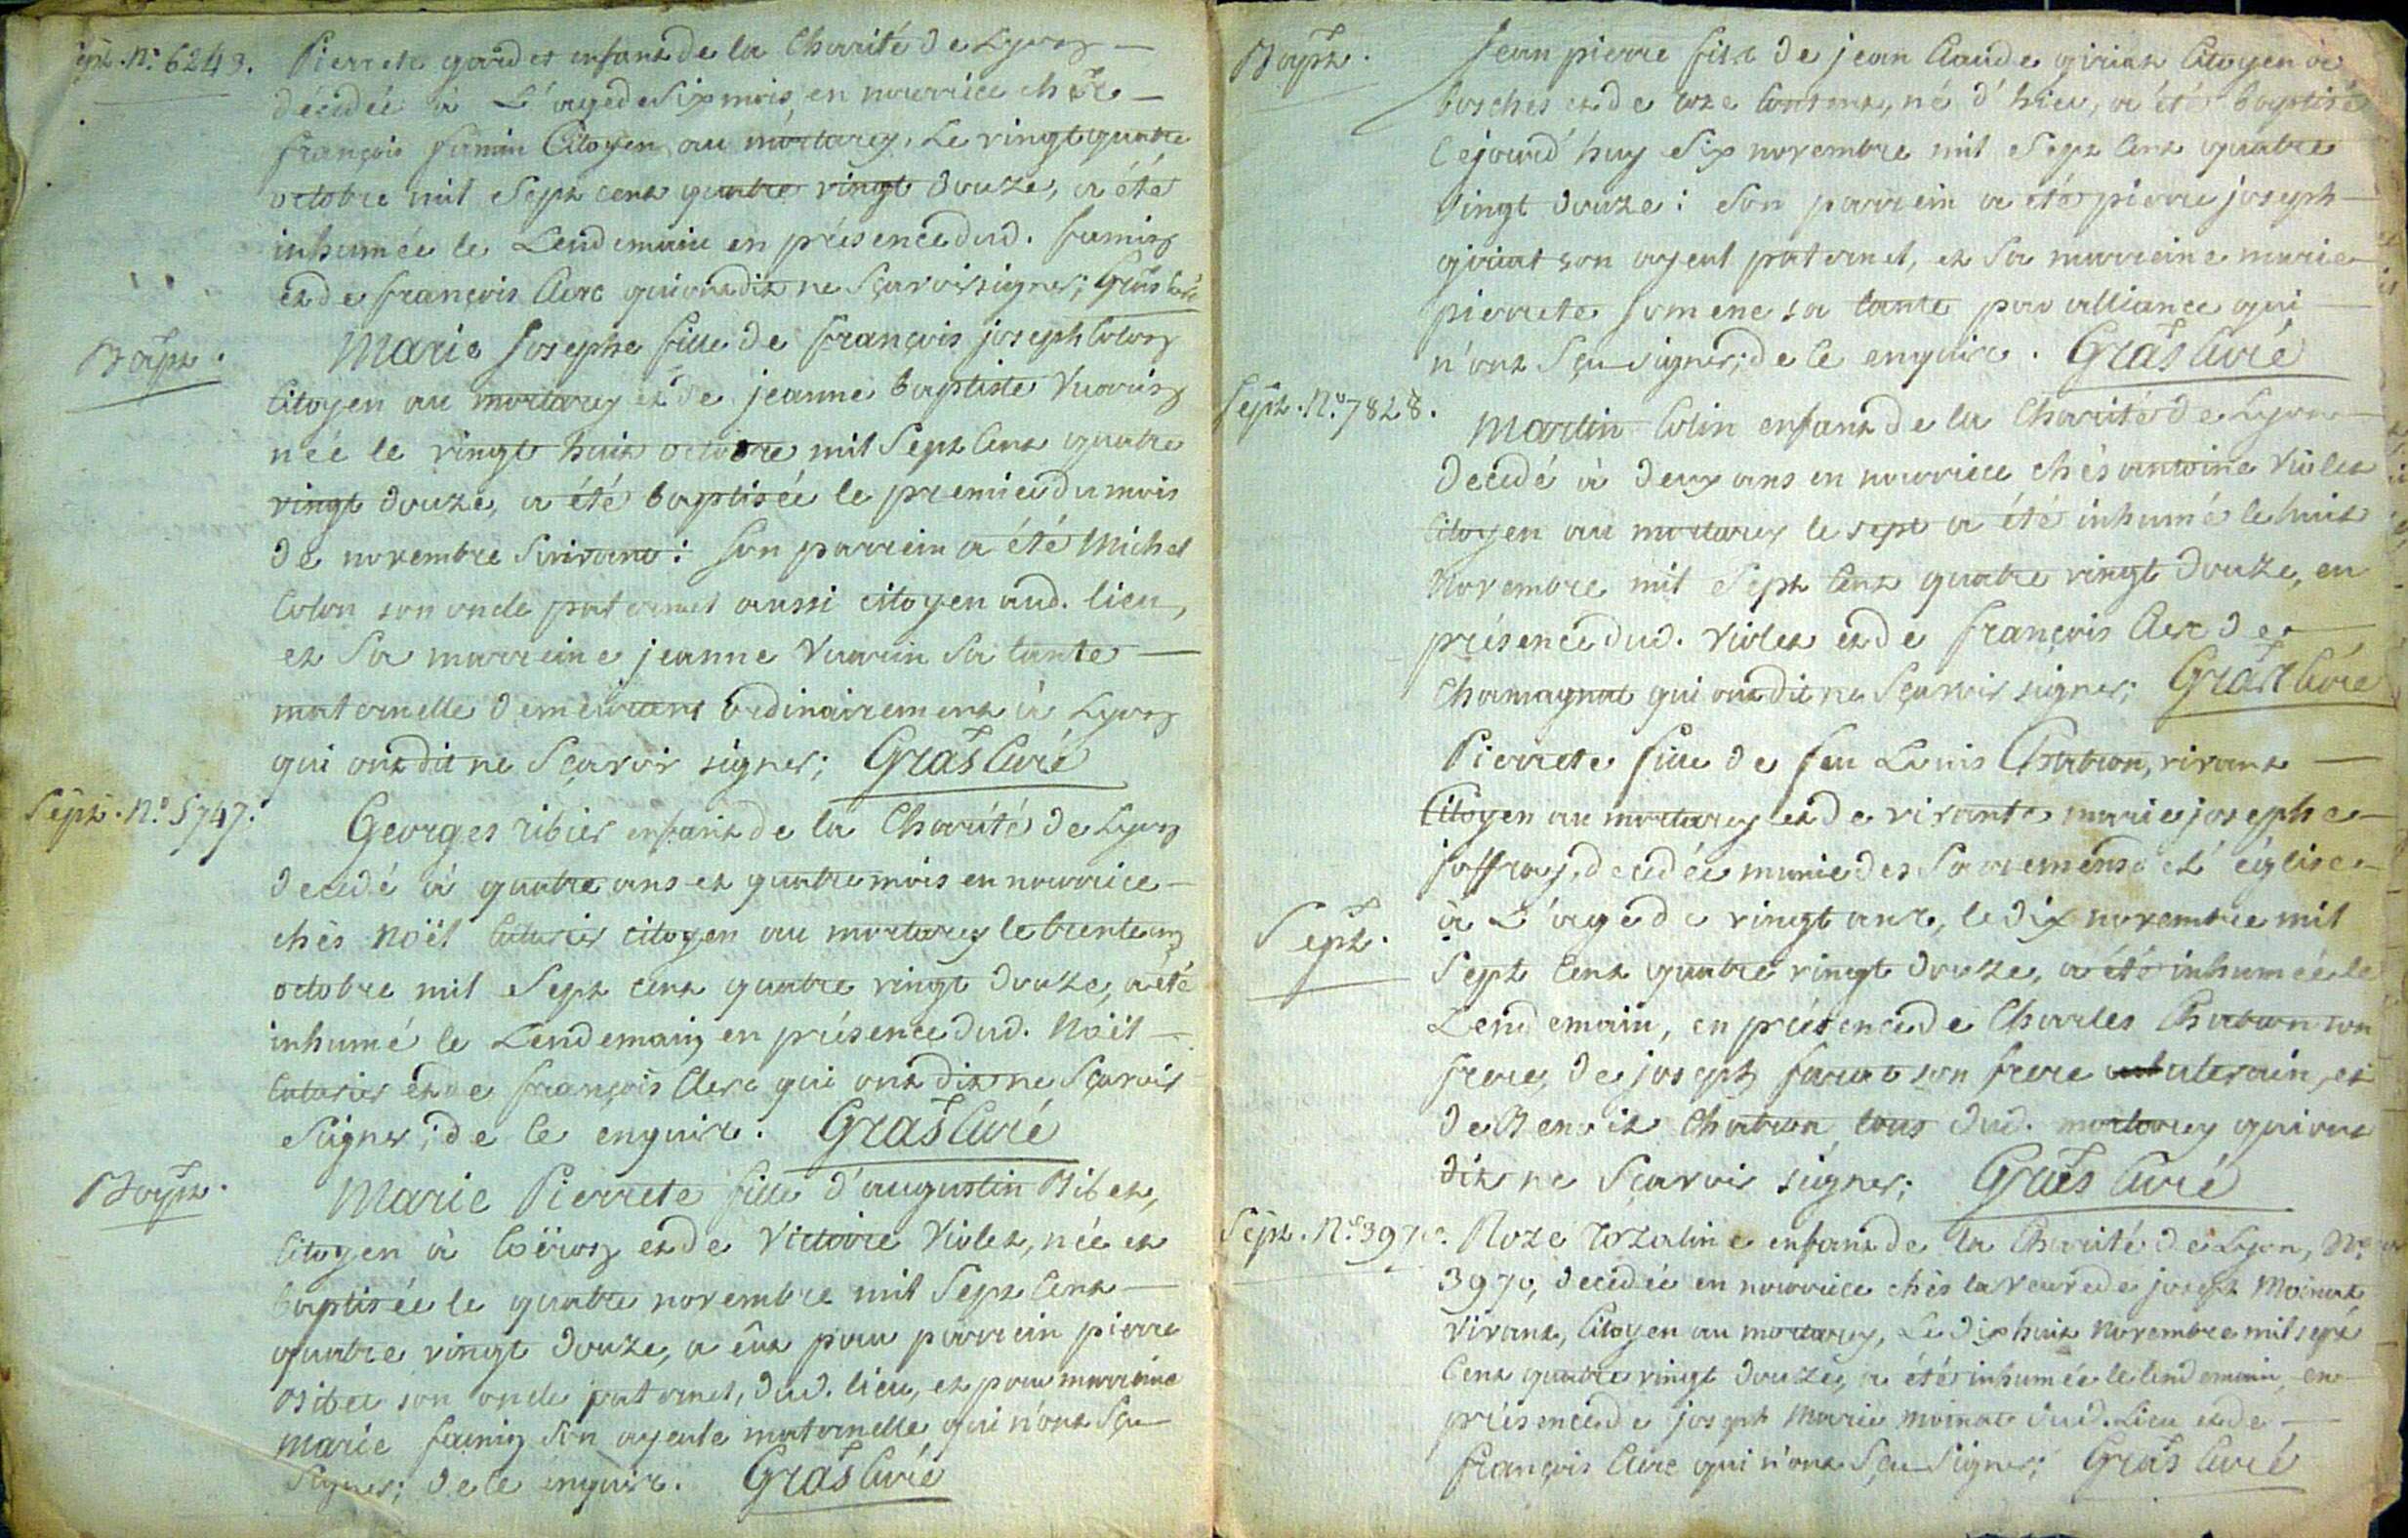 Sépt. N.° 6243.
Pierrete gardet enfant de la Charité de Lyon
décédée à L'age de Six mois, en nourrice chés
françois famin Citoyen au mortarey, Le vingt quatre
octobre mil Sept cent quatre vingt douze, a été
inhumée le Lendemain en présence dud. famin
et de françois Clerc qui ont dit ne Sçavoir signer; Gras Curé
Bapt.
Marie Josephe fille de françois joseph Colon
Citoyen au mortarey et de jeanne baptiste Vuarin
née le vingt huit octobre mil Sept Cent quatre
vingt douze, a été baptisée le premier du mois
de novembre Suivant: Son parrein a été Michel
Colon son oncle paternel aussi citoyen aud. lieu,
et Sa marreine jeanne Vuarin Sa tante
maternelle demeurant ordinairement à Lyon
qui ont dit ne Sçavoir signer; Gras Curé
Sépt. N.° 5747.
Georges ribier enfant de la Charité de Lyon
decedé à quatre ans et quatre mois en nourrice
chés Noël citoyen au mortarey le trente un
octobre mil Sept cent quatre vingt douze, a été
inhumé le Lendemain en présence dud. Noël
et de françois Clerc qui ont dit ne Sçavoir
Signer; de ce enquis. Gras Curé
Bapt.
Marie Pierrete fille d'augustin Bibet,
Citoyen à et de Victoire Violet, née et
baptisée le quatre novembre mil Sept Cent
quatre vingt douze, a eût pour parrein pierre
Bibet son oncle paternel, dud. lieu, et pour marreine
marie famin Son ayeule maternelle qui n'ont Sçu
Signer; de ce enquis. Gras Curé
Bapt.
Jean pierre fils de jean Claude giriat Citoyen à
bosches et de née d'hier, a été baptisé
Cejourd'huy Six novembre mil Sept Cent quatre
Vingt douze: Son parrein a été pierre joseph
giriat son ayeul paternel, et Sa marreine marie
pierrete Sa tante par alliance qui
n'ont Sçu signer; de ce enquis. Gras Curé
Sépt. N.° 7828.
Martin Colin enfant de la Charité de Lyon
decedé à deux ans en nourrice chés antoine Violet
Citoyen au mortarey le sept a été inhumé le huit
Novembre mil Sept Cent quatre vingt douze, en
présence dud. Violet et de françois Clerc de
Chamagnat qui ont dit ne Sçavoir signer; Gras Curé
Pierrete fille de feu Louis Chatron, vivant
Citoyen au mortarey et de vivante marie josephe
joffray, decedée munie des Sacremens de l'église
Sépt.
à L'age de vingt ans, le dix novembre mil
Sept Cent quatre vingt douze, a été inhumée le
Lendemain, en présence de Charles Chatron son
frere, de joseph son frere uterain, et
de Benoit Chatron tous dud. mortarey qui ont
dit ne Sçavoir signer; Gras Curé
Sépt. N.° 3970.
Roze Rozaline enfant de la Charité de Lyon, N.°
3970, decedée en nourrice chés la veuve de joseph Moinat
vivant, Citoyen au mortarey, Le dix huit Novembre mil sept
Cent quatre vingt douze, a été inhumée le lendemain en
présence de joseph Marie moinat dud. Lieu et de
françois Clerc qui n'ont Sçu Signer; Gras Curé